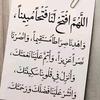 اللهم افتح لنا فتحاً مبيناً،
واهدنا صراطاً مستقيماً، وانصرنا
نصراً عزيزاً، وأتم علينا نعمتك،
وأنزل في قلوبنا سكينتك،
وانشر علينا فضلك ورحمتك